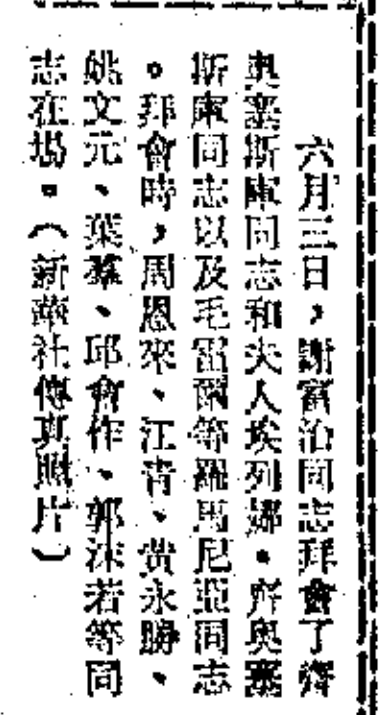 六月三日，謝富治同志拜會了齊
奧塞斯庫同志和夫人埃列娜·齊奧塞
斯庫同志以及毛雷爾等羅馬尼亞同志
。拜會時，周恩來、江青、黄永勝、
姚文元、葉羣、邱會作、郭沫若等同
志在場。（新華社傳真照片）